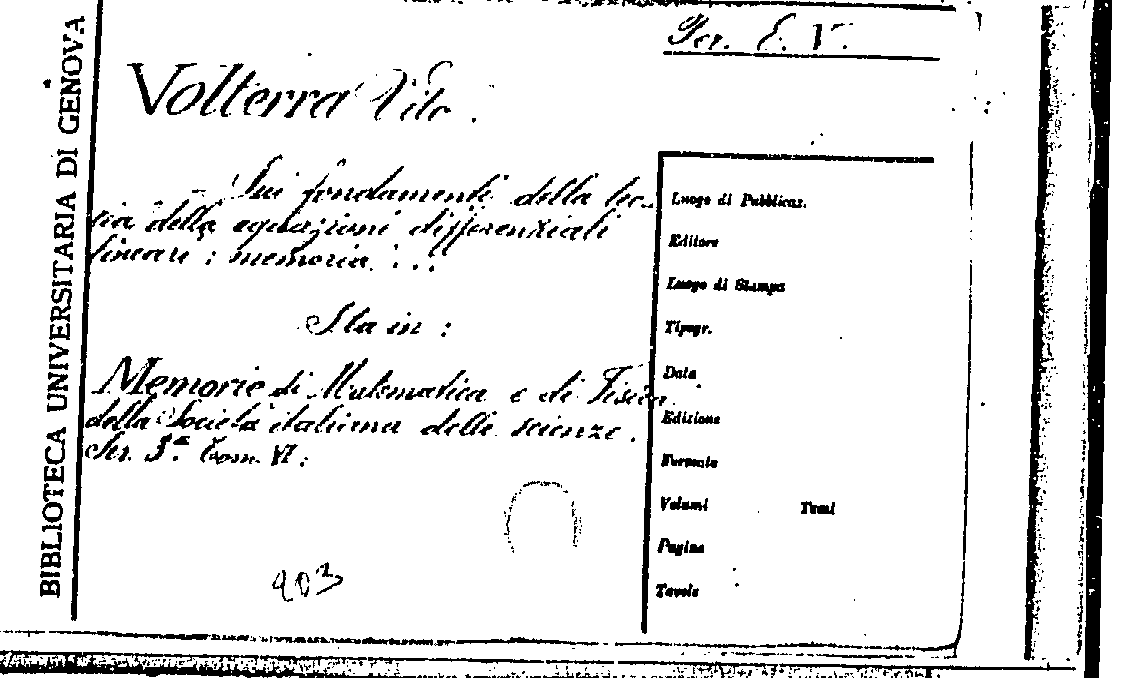 BIBLIOTECA UNIVERSITARIA DI GENOVA
Per. E. V.
Volterra Vito.
Sui fondamenti della teo-
ria delle equazioni differenziali
lineari : memoria . . .
Sta in :
Memorie di Matematica e di Fisica
della Società italiana delle scienze.
Ser. 3ª. Tom. VI.
903
Luogo di Pubblicaz.
Editore
Luogo di Stampa
Tipogr.
Data
Edizione
Formato
Volumi Tomi
Pagine
Tavole